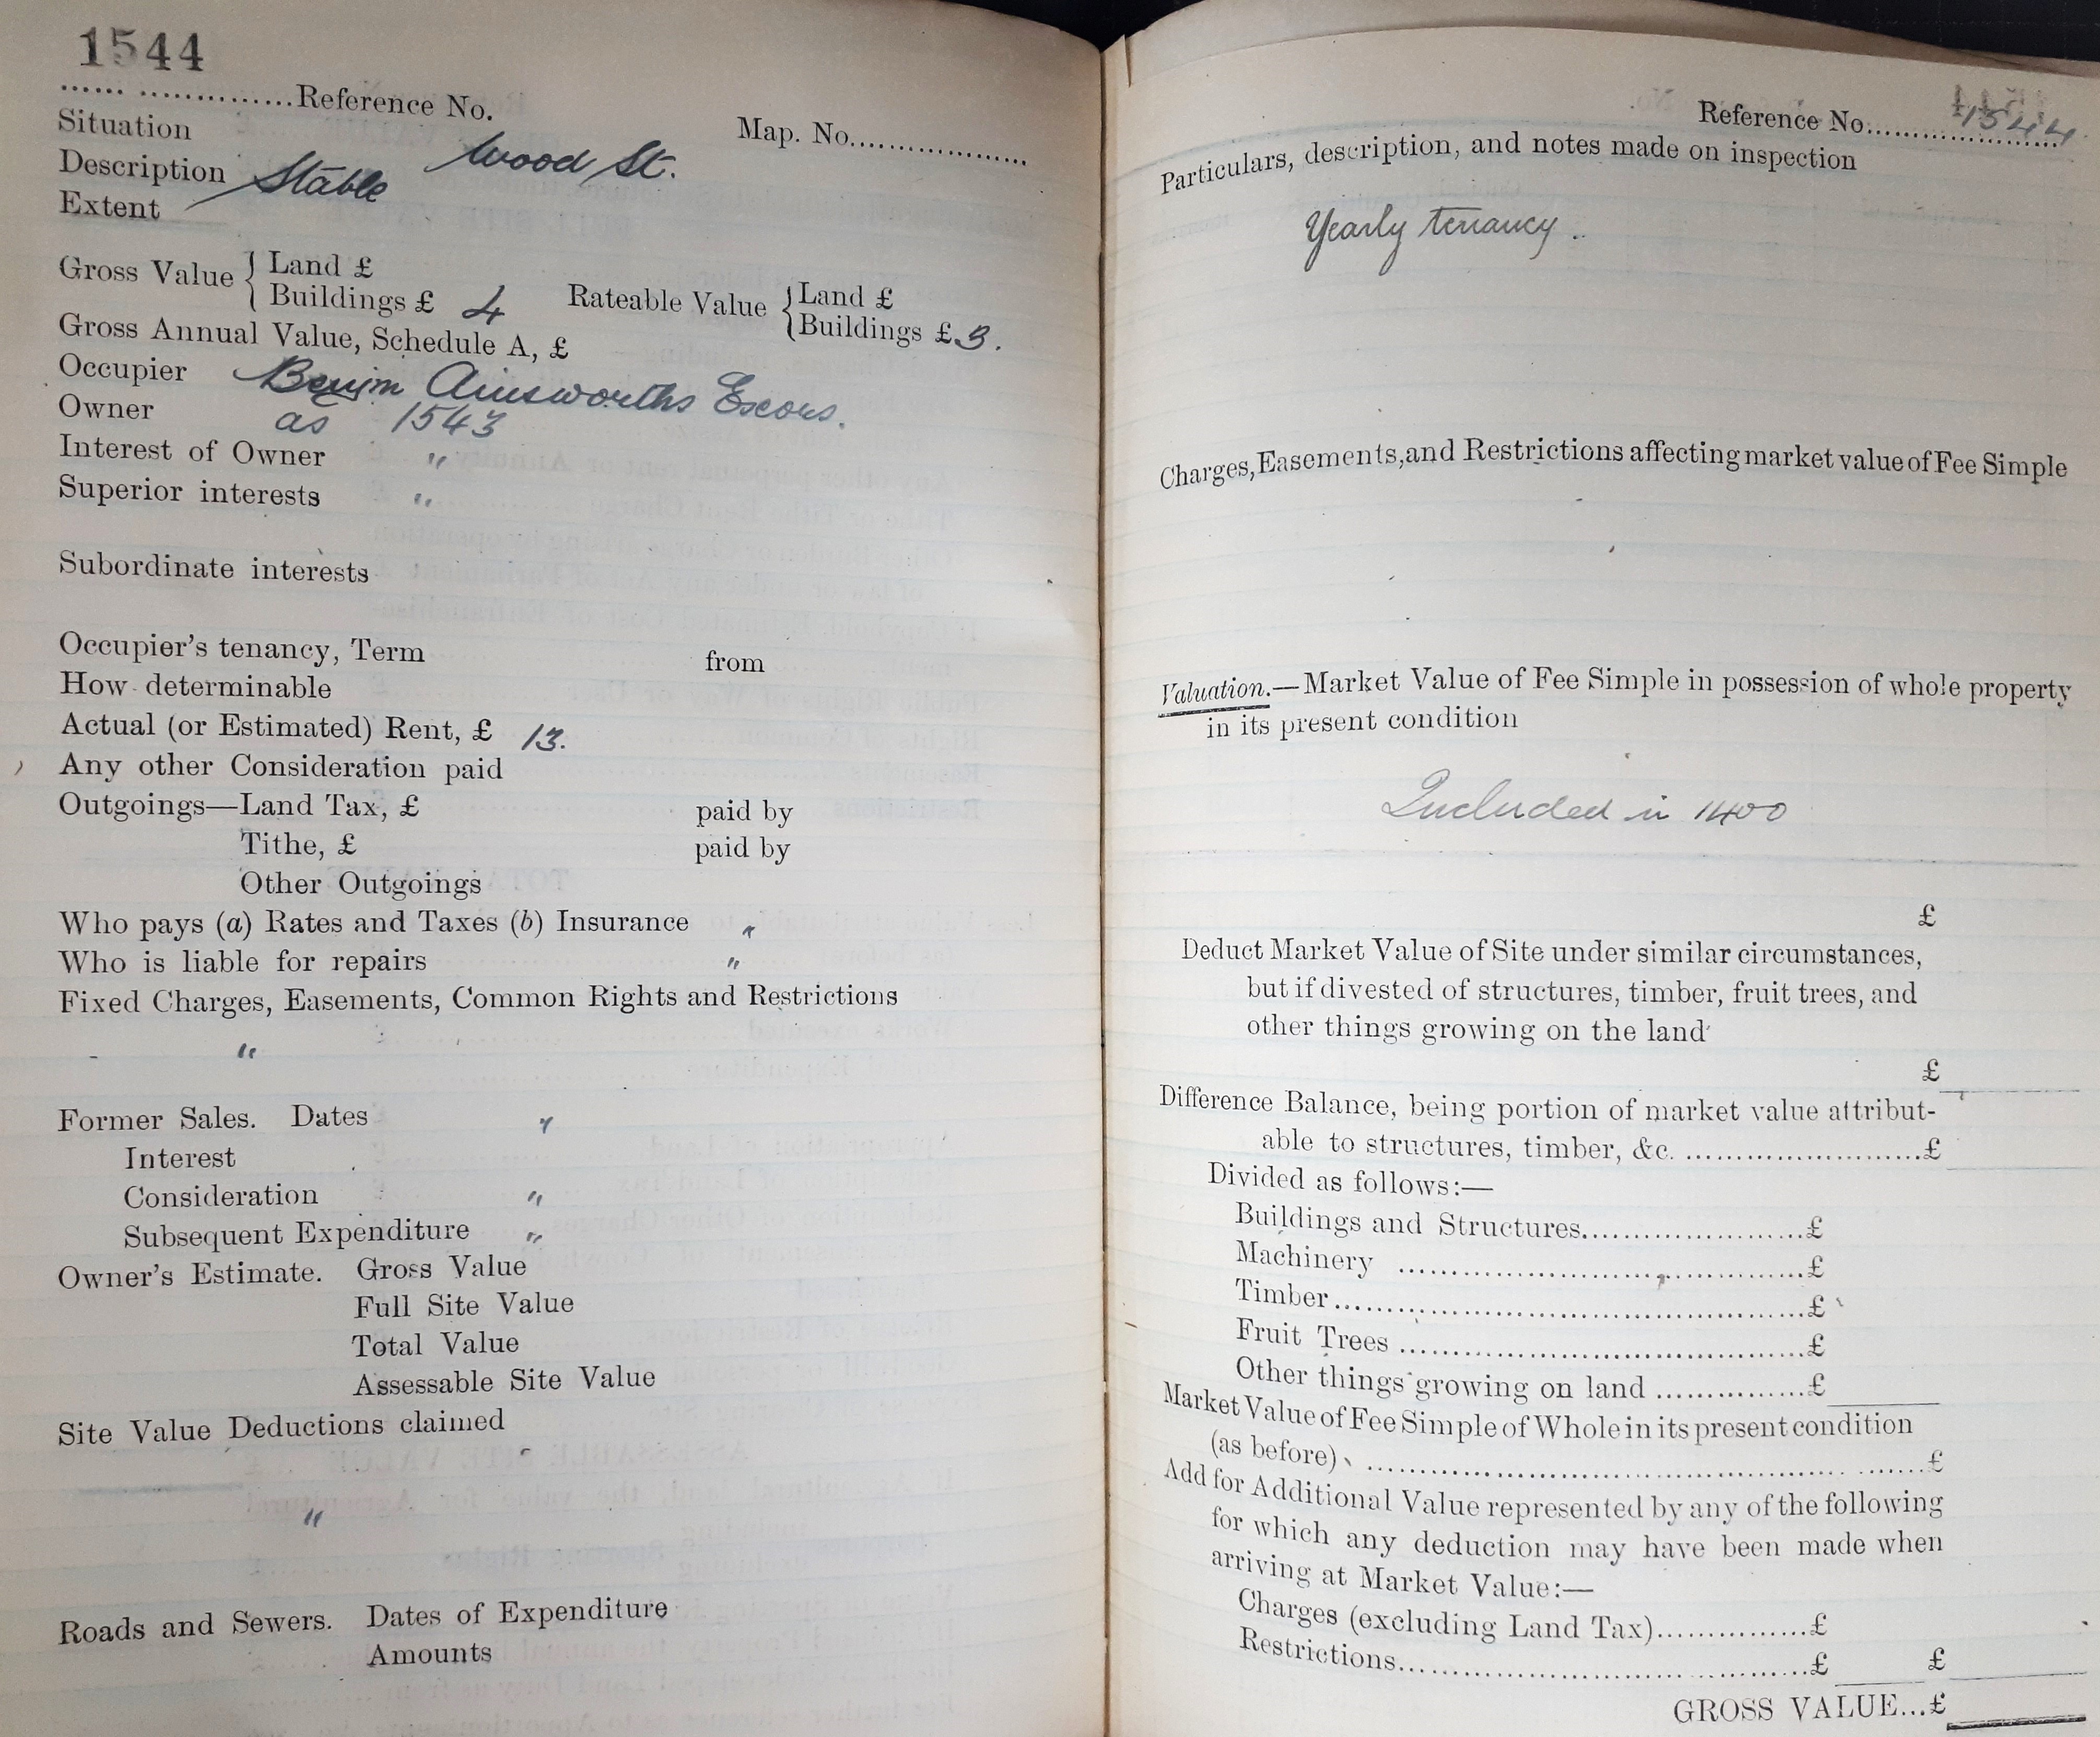 1544
...... ..............Reference No.
Map. No...................
Situation Wood St.
Description Stable
Extent
Gross Value { Land £
Buildings £ 4
Rateable Value { Land £
Buildings £ 3.
Gross Annual Value, Schedule A, £
Occupier Benjm Ainsworths Excors.
Owner as 1543
Interest of Owner "
Superior interests "
Subordinate interests
Occupier's tenancy, Term from
How determinable
Actual (or Estimated) Rent, £ 13.
Any other Consideration paid
Outgoings—Land Tax, £ paid by
Tithe, £ paid by
Other Outgoings
Who pays (a) Rates and Taxes (b) Insurance "
Who is liable for repairs "
Fixed Charges, Easements, Common Rights and Restrictions
"
Former Sales. Dates "
Interest
Consideration "
Subsequent Expenditure "
Owner's Estimate. Gross Value
Full Site Value
Total Value
Assessable Site Value
Site Value Deductions claimed
"
Roads and Sewers. Dates of Expenditure
Amounts
Reference No.......1544
Particulars, description, and notes made on inspection
Yearly tenancy.
Charges, Easements, and Restrictions affecting market value of Fee Simple
Valuation.—Market Value of Fee Simple in possession of whole property
in its present condition
Included in 1400
£
Deduct Market Value of Site under similar circumstances,
but if divested of structures, timber, fruit trees, and
other things growing on the land
£
Difference Balance, being portion of market value attribut-
able to structures, timber, &c. ..........................£
Divided as follows:—
Buildings and Structures.........................£
Machinery .............................................£
Timber....................................................£
Fruit Trees .............................................£
Other things growing on land ................£
Market Value of Fee Simple of Whole in its present condition
(as before) ................................................................£
Add for Additional Value represented by any of the following
for which any deduction may have been made when
arriving at Market Value:—
Charges (excluding Land Tax)................£
Restrictions.............................................£ £
GROSS VALUE...£